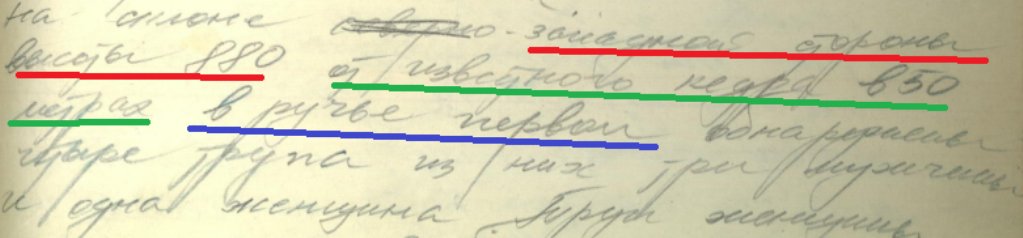 на склоне северно-западной стороны
высоты 880 от известного кедра в 50
метрах в ручье первом обнаружены
четыре трупа из них три мужчины
и одна женщина. Труп женщины